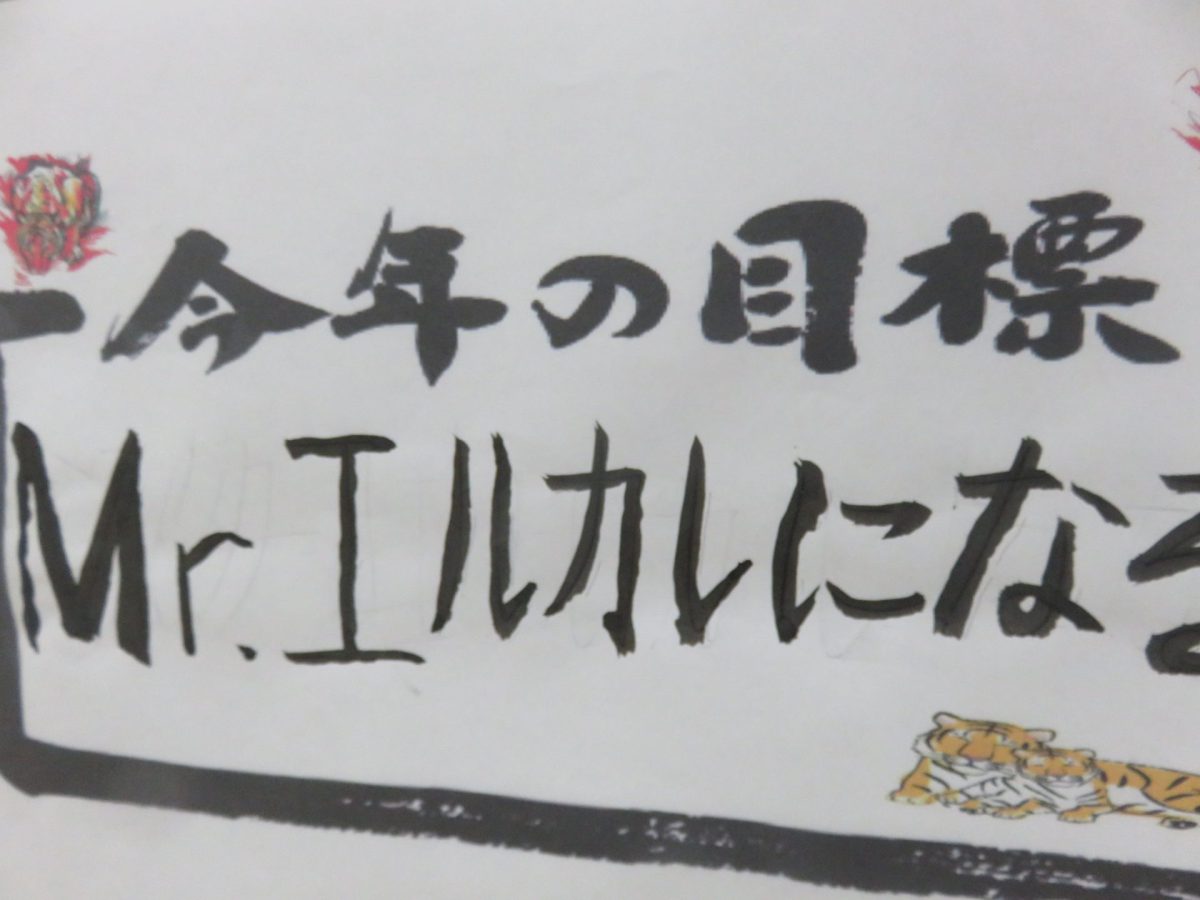 今年の目標
Mr.エルカレになる